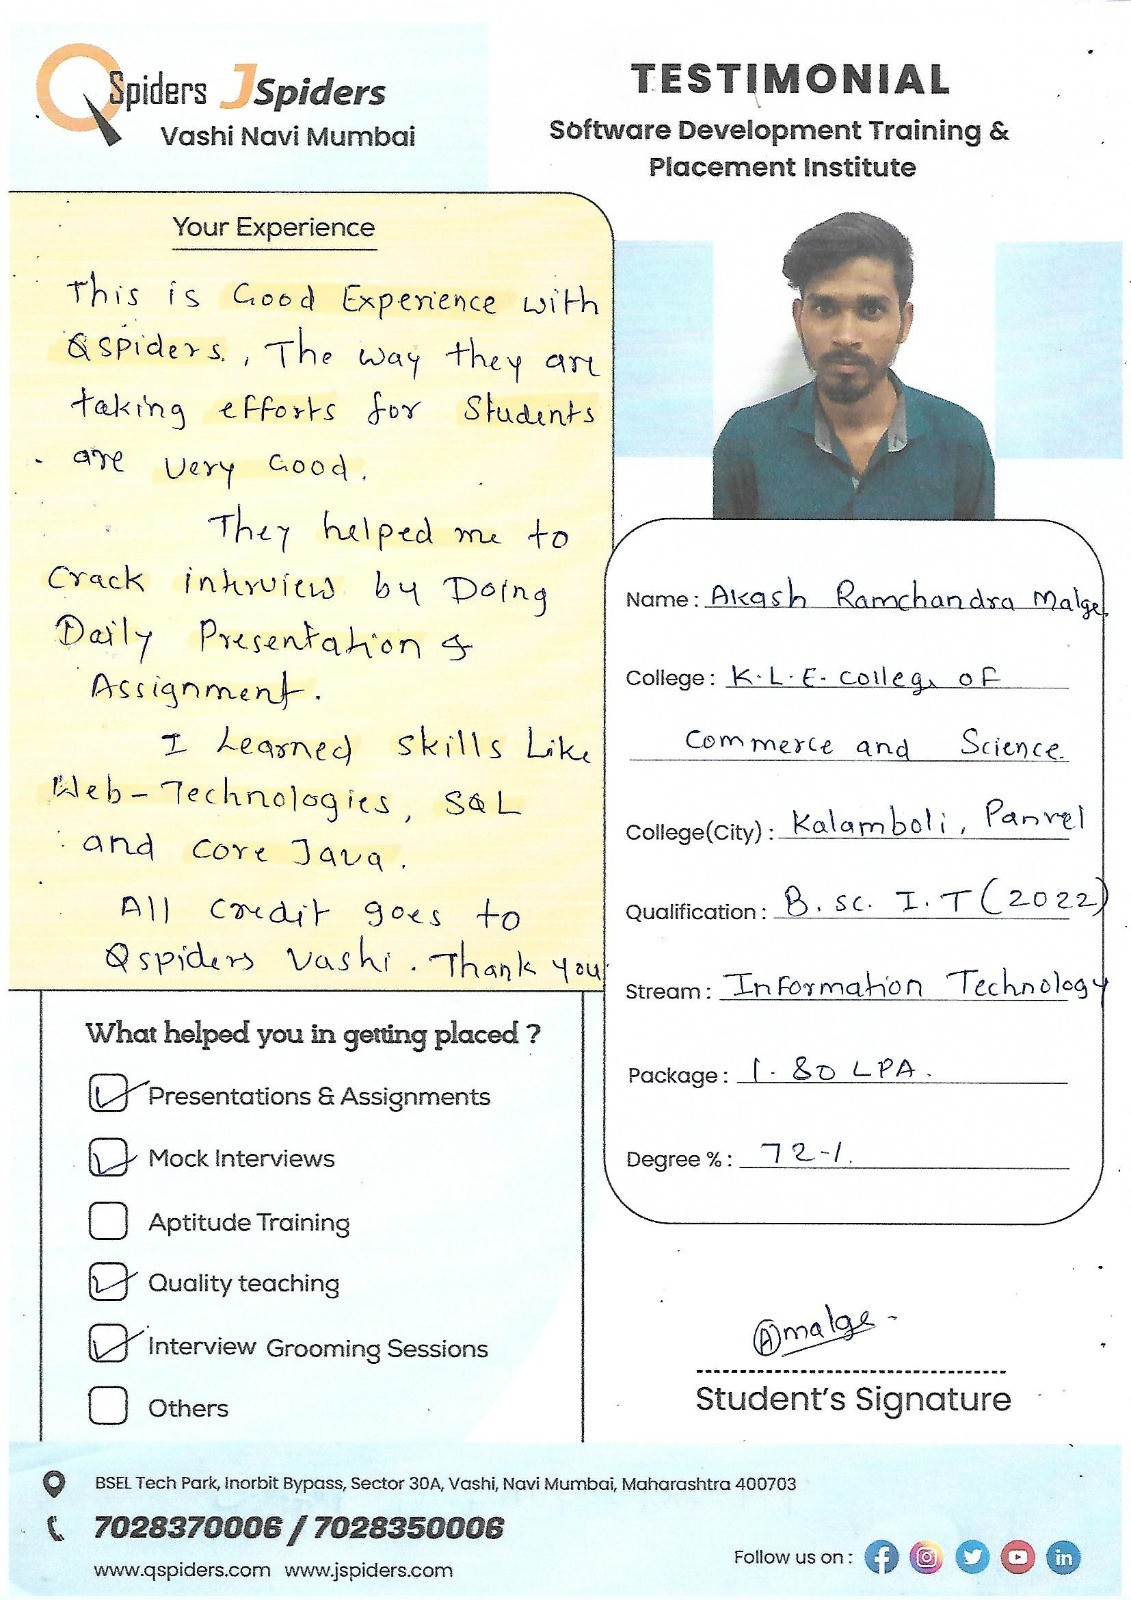 QSpiders JSpiders
Vashi Navi Mumbai
TESTIMONIAL
Software Development Training &
Placement Institute
Your Experience
This is Good Experience with
QSpiders. , The way they are
taking efforts for Students
are very Good.
They helped me to
Crack intrview by Doing
Daily Presentation &
Assignment.
I Learned skills Like
Web-Technologies, SQL
and core Java.
All credit goes to
Qspiders Vashi. Thank you
What helped you in getting placed ?
Presentations & Assignments
Mock Interviews
Aptitude Training
Quality teaching
Interview Grooming Sessions
Others
Name : Akash Ramchandra Malge
College : K.L.E. College of
Commerce and Science.
College(City) : Kalamboli, Panvel
Qualification : B.sc. I.T (2022)
Stream : Information Technology
Package : 1.80 LPA.
Degree % : 72-/.
Amalge
Student's Signature
BSEL Tech Park, Inorbit Bypass, Sector 30A, Vashi, Navi Mumbai, Maharashtra 400703
7028370006 / 7028350006
www.qspiders.com www.jspiders.com
Follow us on :